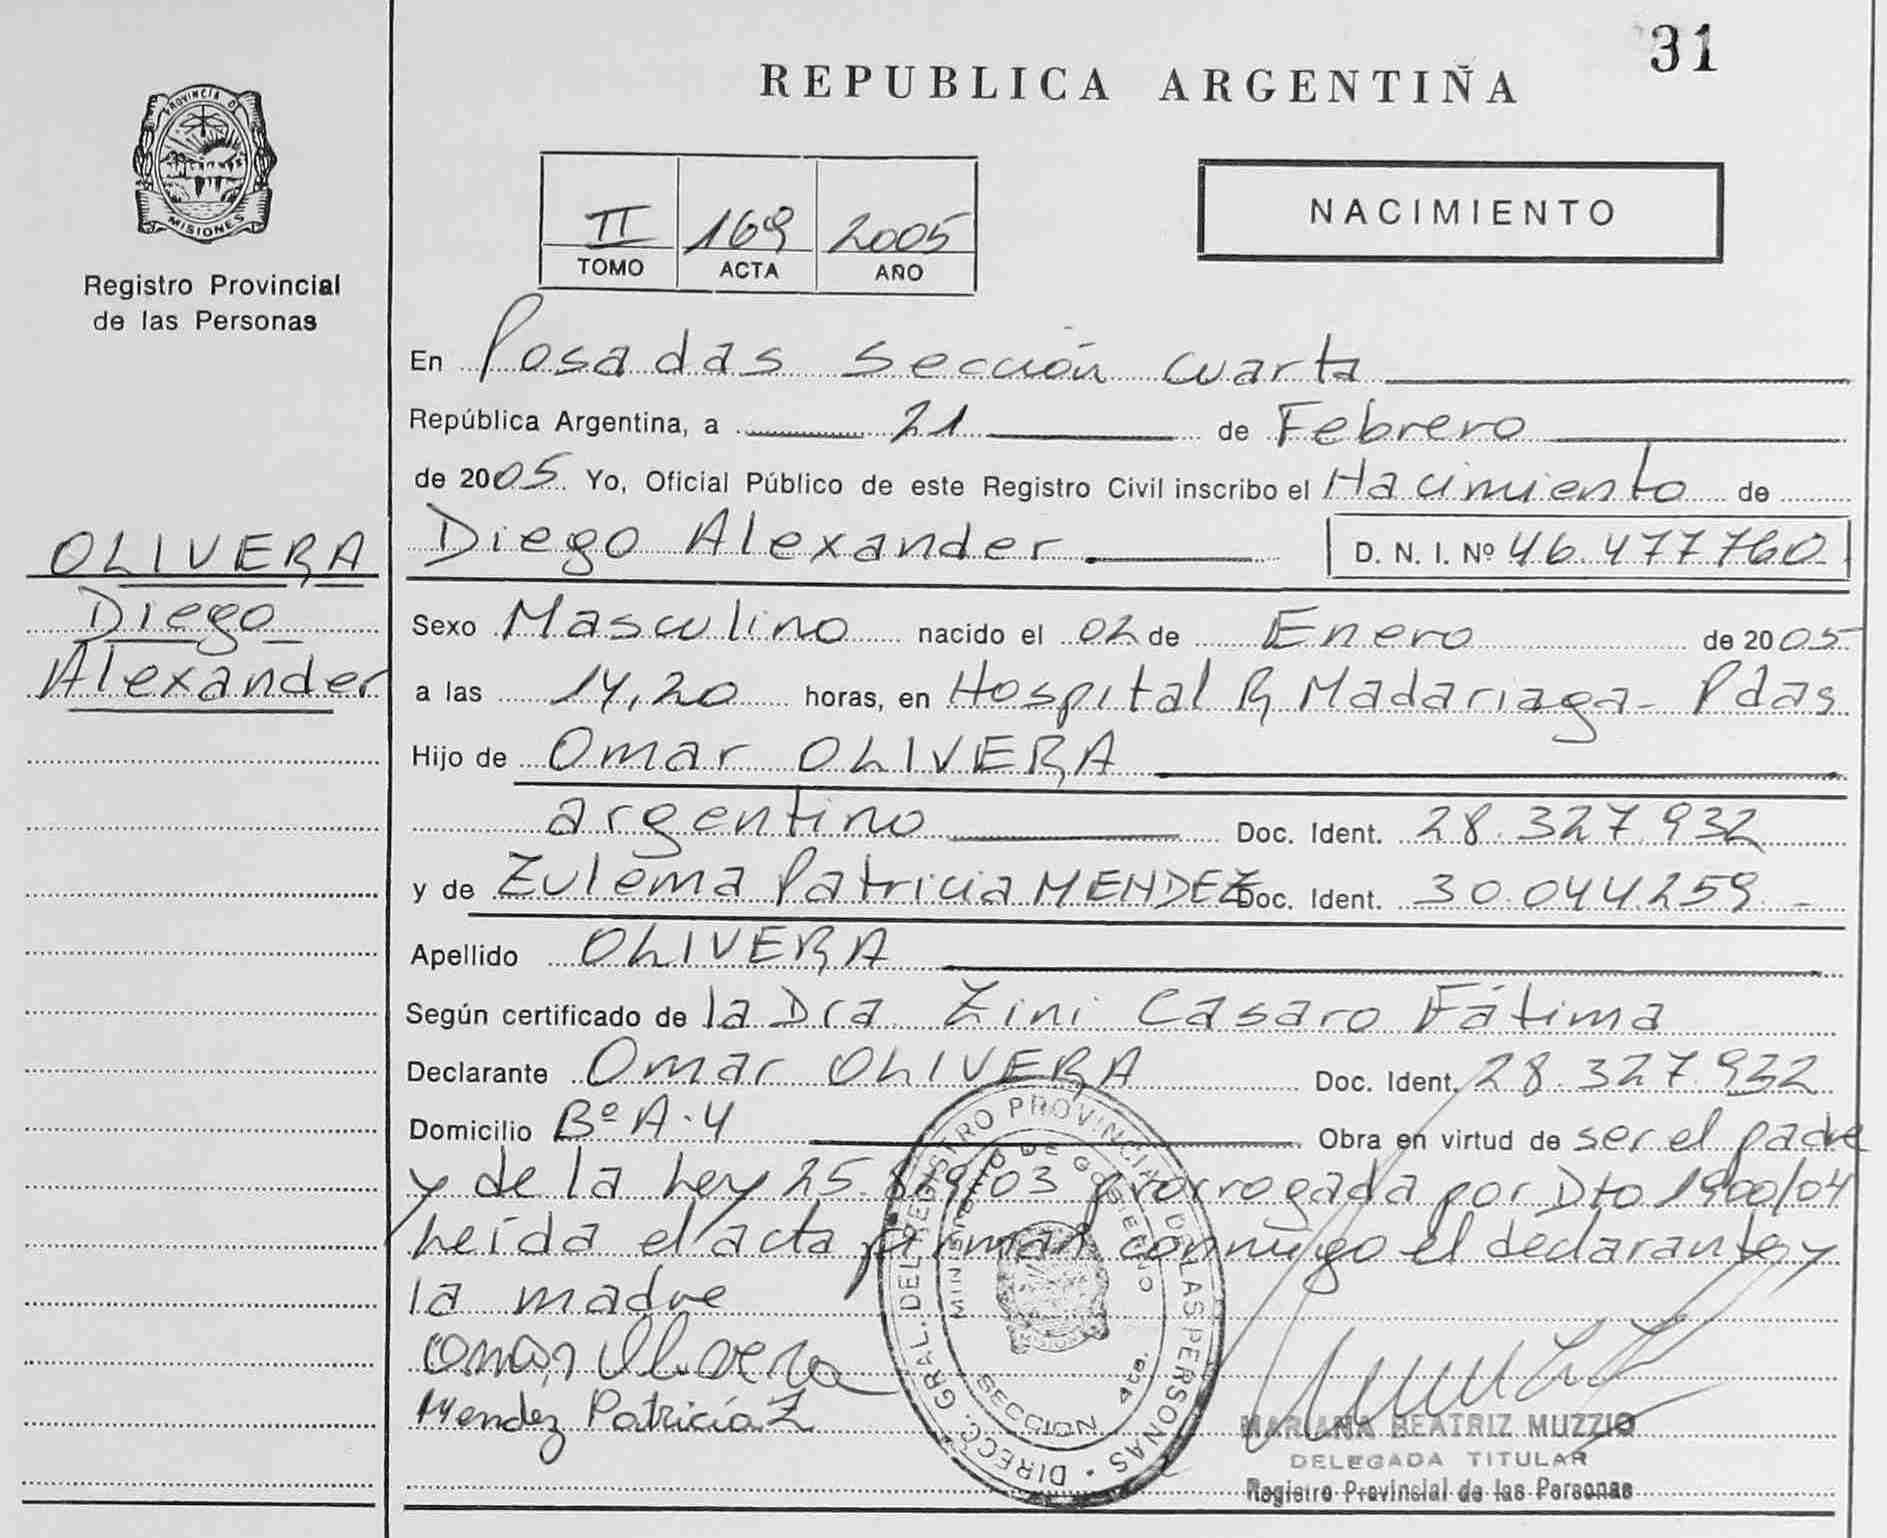 31
REPUBLICA ARGENTIÑA
PROVINCIA D
MISIONES
Registro Provincial
de las Personas
II 169 2005
TOMO ACTA AÑO
NACIMIENTO
En Posadas sección cuarta
República Argentina, a 21 de Febrero
de 2005 Yo, Oficial Público de este Registro Civil inscribo el Nacimiento de
Diego Alexander D. N. I. Nº 46.477.760
OLIVERA
Diego
Alexander
Sexo Masculino nacido el 02 de Enero de 2005
a las 14,20 horas, en Hospital R Madariaga - Pdas
Hijo de Omar OLIVERA
argentino Doc. Ident. 28.327.932
y de Zulema Patricia MENDEZ Doc. Ident. 30.044.259
Apellido OLIVERA
Según certificado de la Dra Zini Casaro Fátima
Declarante Omar OLIVERA Doc. Ident. 28.327.932
Domicilio Bº A-4 Obra en virtud de ser el padre
y de la Ley 25.819/03 prorrogada por Dto 1900/04
Leída el acta firman conmigo el declarante y
la madre
Omar Olivera
Mendez Patricia Z
DIRECC. GRAL. DEL REGISTRO PROVINCIAL DE LAS PERSONAS
MINISTERIO DE GOBIERNO
SECCION 4ta.
MARIANA BEATRIZ MUZZIO
DELEGADA TITULAR
Registro Provincial de las Personas